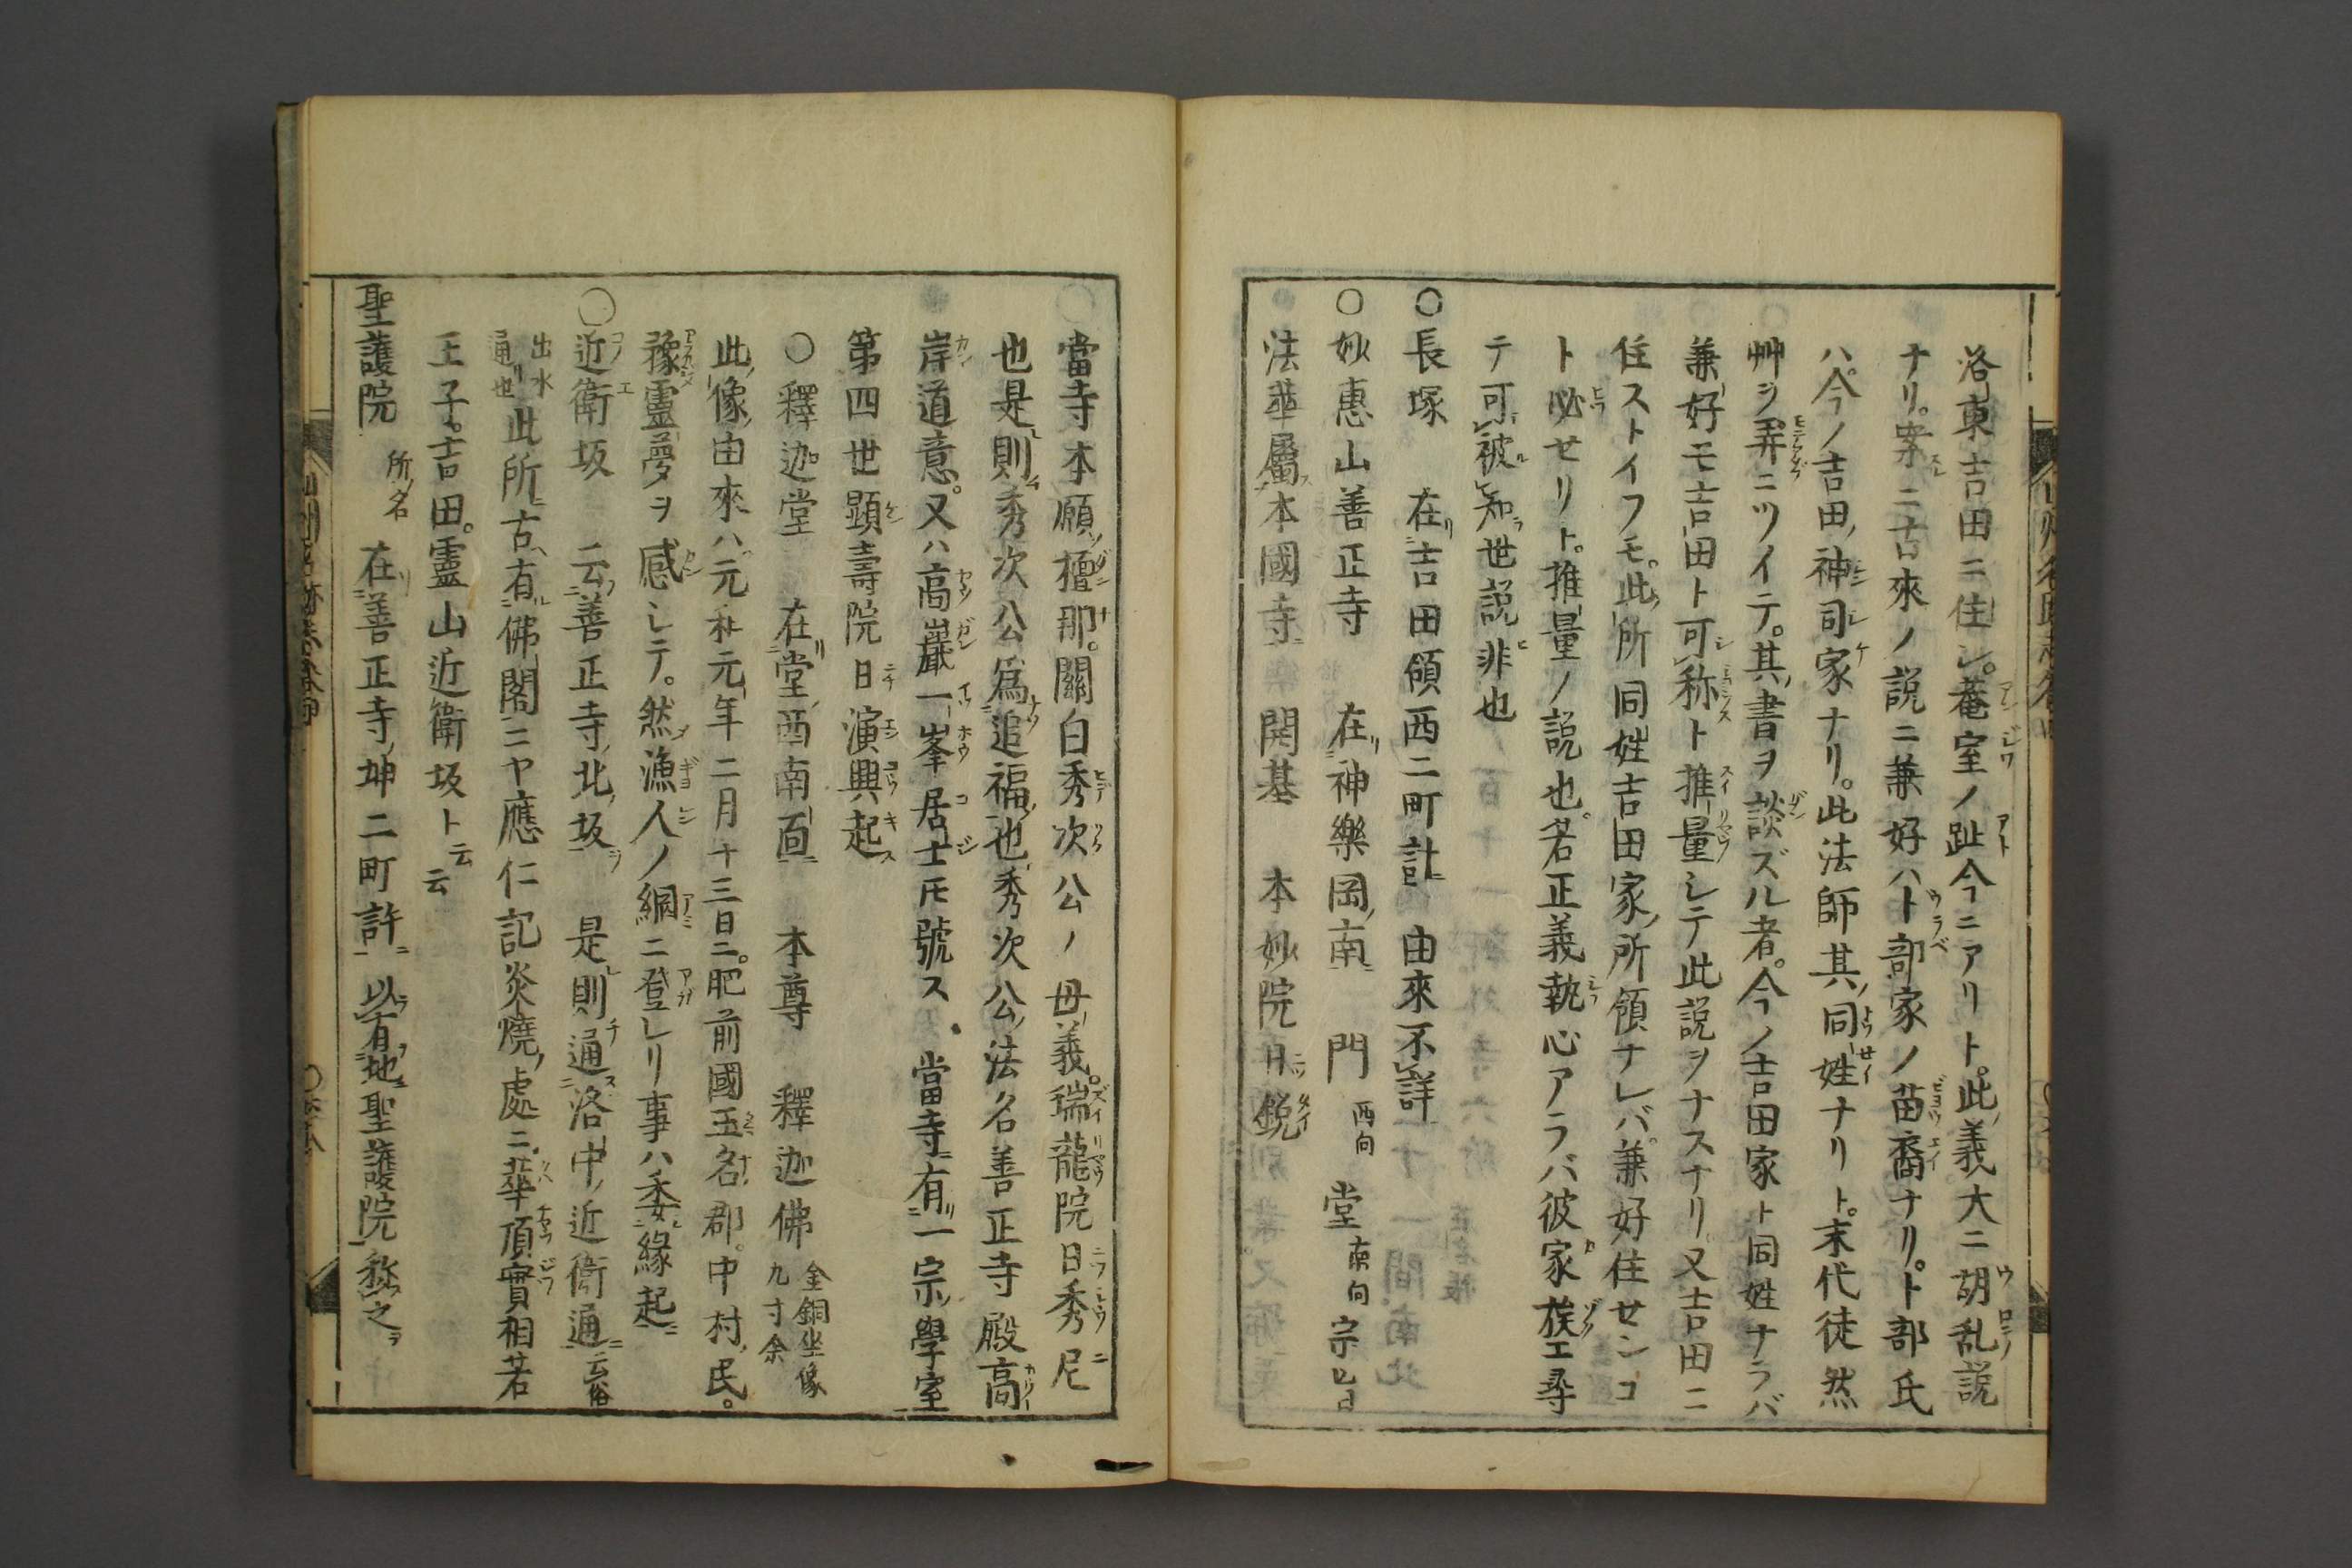 洛東吉田ニ住シ。菴室ノ趾今ニアリト。此義大ニ胡乱説
ナリ。案ニ古來ノ説ニ兼好ハ卜部家ノ苗裔ナリ。卜部氏
ハ今ノ吉田ノ神司家ナリ。此法師其ノ同姓ナリト。末代徒然
艸ヲ弄ニツイテ。其ノ書ヲ談ズル者。今ノ吉田家ト同姓ナラバ
兼好モ吉田ト可称ト推量シテ此説ヲナスナリ又吉田ニ
住ストイフモ。此所同姓吉田家ノ所領ナレバ兼好住センコ
ト必セリト。推量ノ説也。名正義執心アラバ彼家族エ尋
テ可被知世説非也
○長塚 在吉田領西二町計 由來不詳
○妙惠山善正寺 在神樂岡ノ南 門西向 堂東向 宗旨
法華屬本國寺 開基 本妙院日鋭
○當寺本願ノ檀那。關白秀次公ノ母義。瑞龍院日秀尼
也是則秀次公爲追福也秀次公ノ法名善正寺殿高
岸道意。又ハ高巖一峯居士𪜈號ス 當寺有一宗ノ學室
第四世顕壽院日演興起
○釋迦堂 在堂ノ西南面 本尊 釋迦佛 金銅坐像九寸余
此ノ像ノ由來ハ元和元年二月十三日ニ。肥前國玉名ノ郡。中村ノ民。
豫靈夢ヲ感シテ。然漁人ノ綱ニ登レリ事ハ委緣起
○近衛坂 云善正寺ノ北ノ坂 是則通洛中ノ近衛通 俗云
出水通リ也 此所古有佛閣ニヤ應仁記炎燒ノ處ニ華頂實相若
王子。吉田。靈山近衛坂ト云云
聖護院 所ノ名 在善正寺ノ坤二町許 以有地聖護院称之